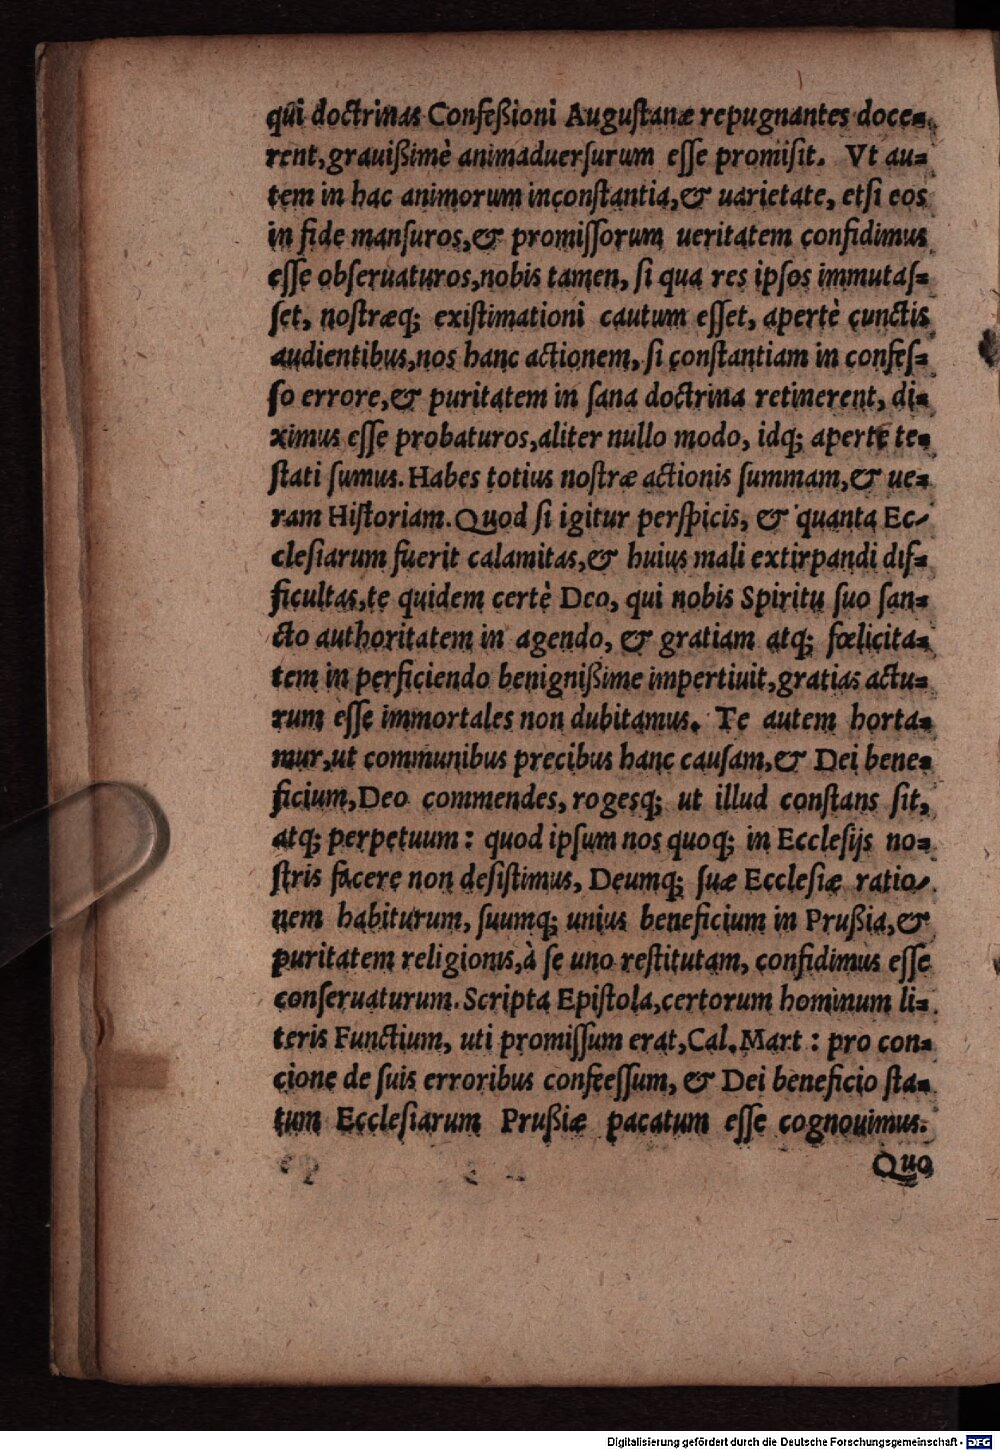 qui doctrinas Confeßioni Auguſtanæ repugnantes doce-
rent, grauißimè animaduerſurum eſſe promiſit. Vt au-
tem in hac animorum inconſtantia, & uarietate, etſi eos
in fide manſuros, & promiſſorum ueritatem confidimus
eſſe obſeruaturos, nobis tamen, ſi qua res ipſos immutaſ-
ſet, noſtræq; exiſtimationi cautum eſſet, apertè cunctis
audientibus, nos hanc actionem, ſi conſtantiam in confeſ-
ſo errore, & puritatem in ſana doctrina retinerent, di-
ximus eſſe probaturos, aliter nullo modo, idq; aperte te-
ſtati ſumus. Habes totius noſtræ actionis ſummam, & ue-
ram Hiſtoriam. Quod ſi igitur perſpicis, & quanta Ec-
cleſiarum fuerit calamitas, & huius mali extirpandi dif-
ficultas, te quidem certè Deo, qui nobis Spiritu ſuo ſan-
cto authoritatem in agendo, & gratiam atq; fœlicita-
tem in perficiendo benignißime impertiuit, gratias actu-
rum eſſe immortales non dubitamus. Te autem horta-
mur, ut communibus precibus hanc cauſam, & Dei bene-
ficium, Deo commendes, rogesq; ut illud conſtans ſit,
atq; perpetuum: quod ipſum nos quoq; in Eccleſijs no-
ſtris facere non deſiſtimus, Deumq; ſuæ Eccleſiæ ratio-
nem habiturum, ſuumq; unius beneficium in Prußia, &
puritatem religionis, à ſe uno reſtitutam, confidimus eſſe
conſeruaturum. Scripta Epiſtola, certorum hominum li-
teris Functium, uti promiſſum erat, Cal. Mart: pro con-
cione de ſuis erroribus confeeſſum, & Dei beneficio ſta-
tum Eccleſiarum Prußiæ pacatum eſſe cognouimus.
Quo
Digitalisierung gefördert durch die Deutsche Forschungsgemeinschaft - DFG